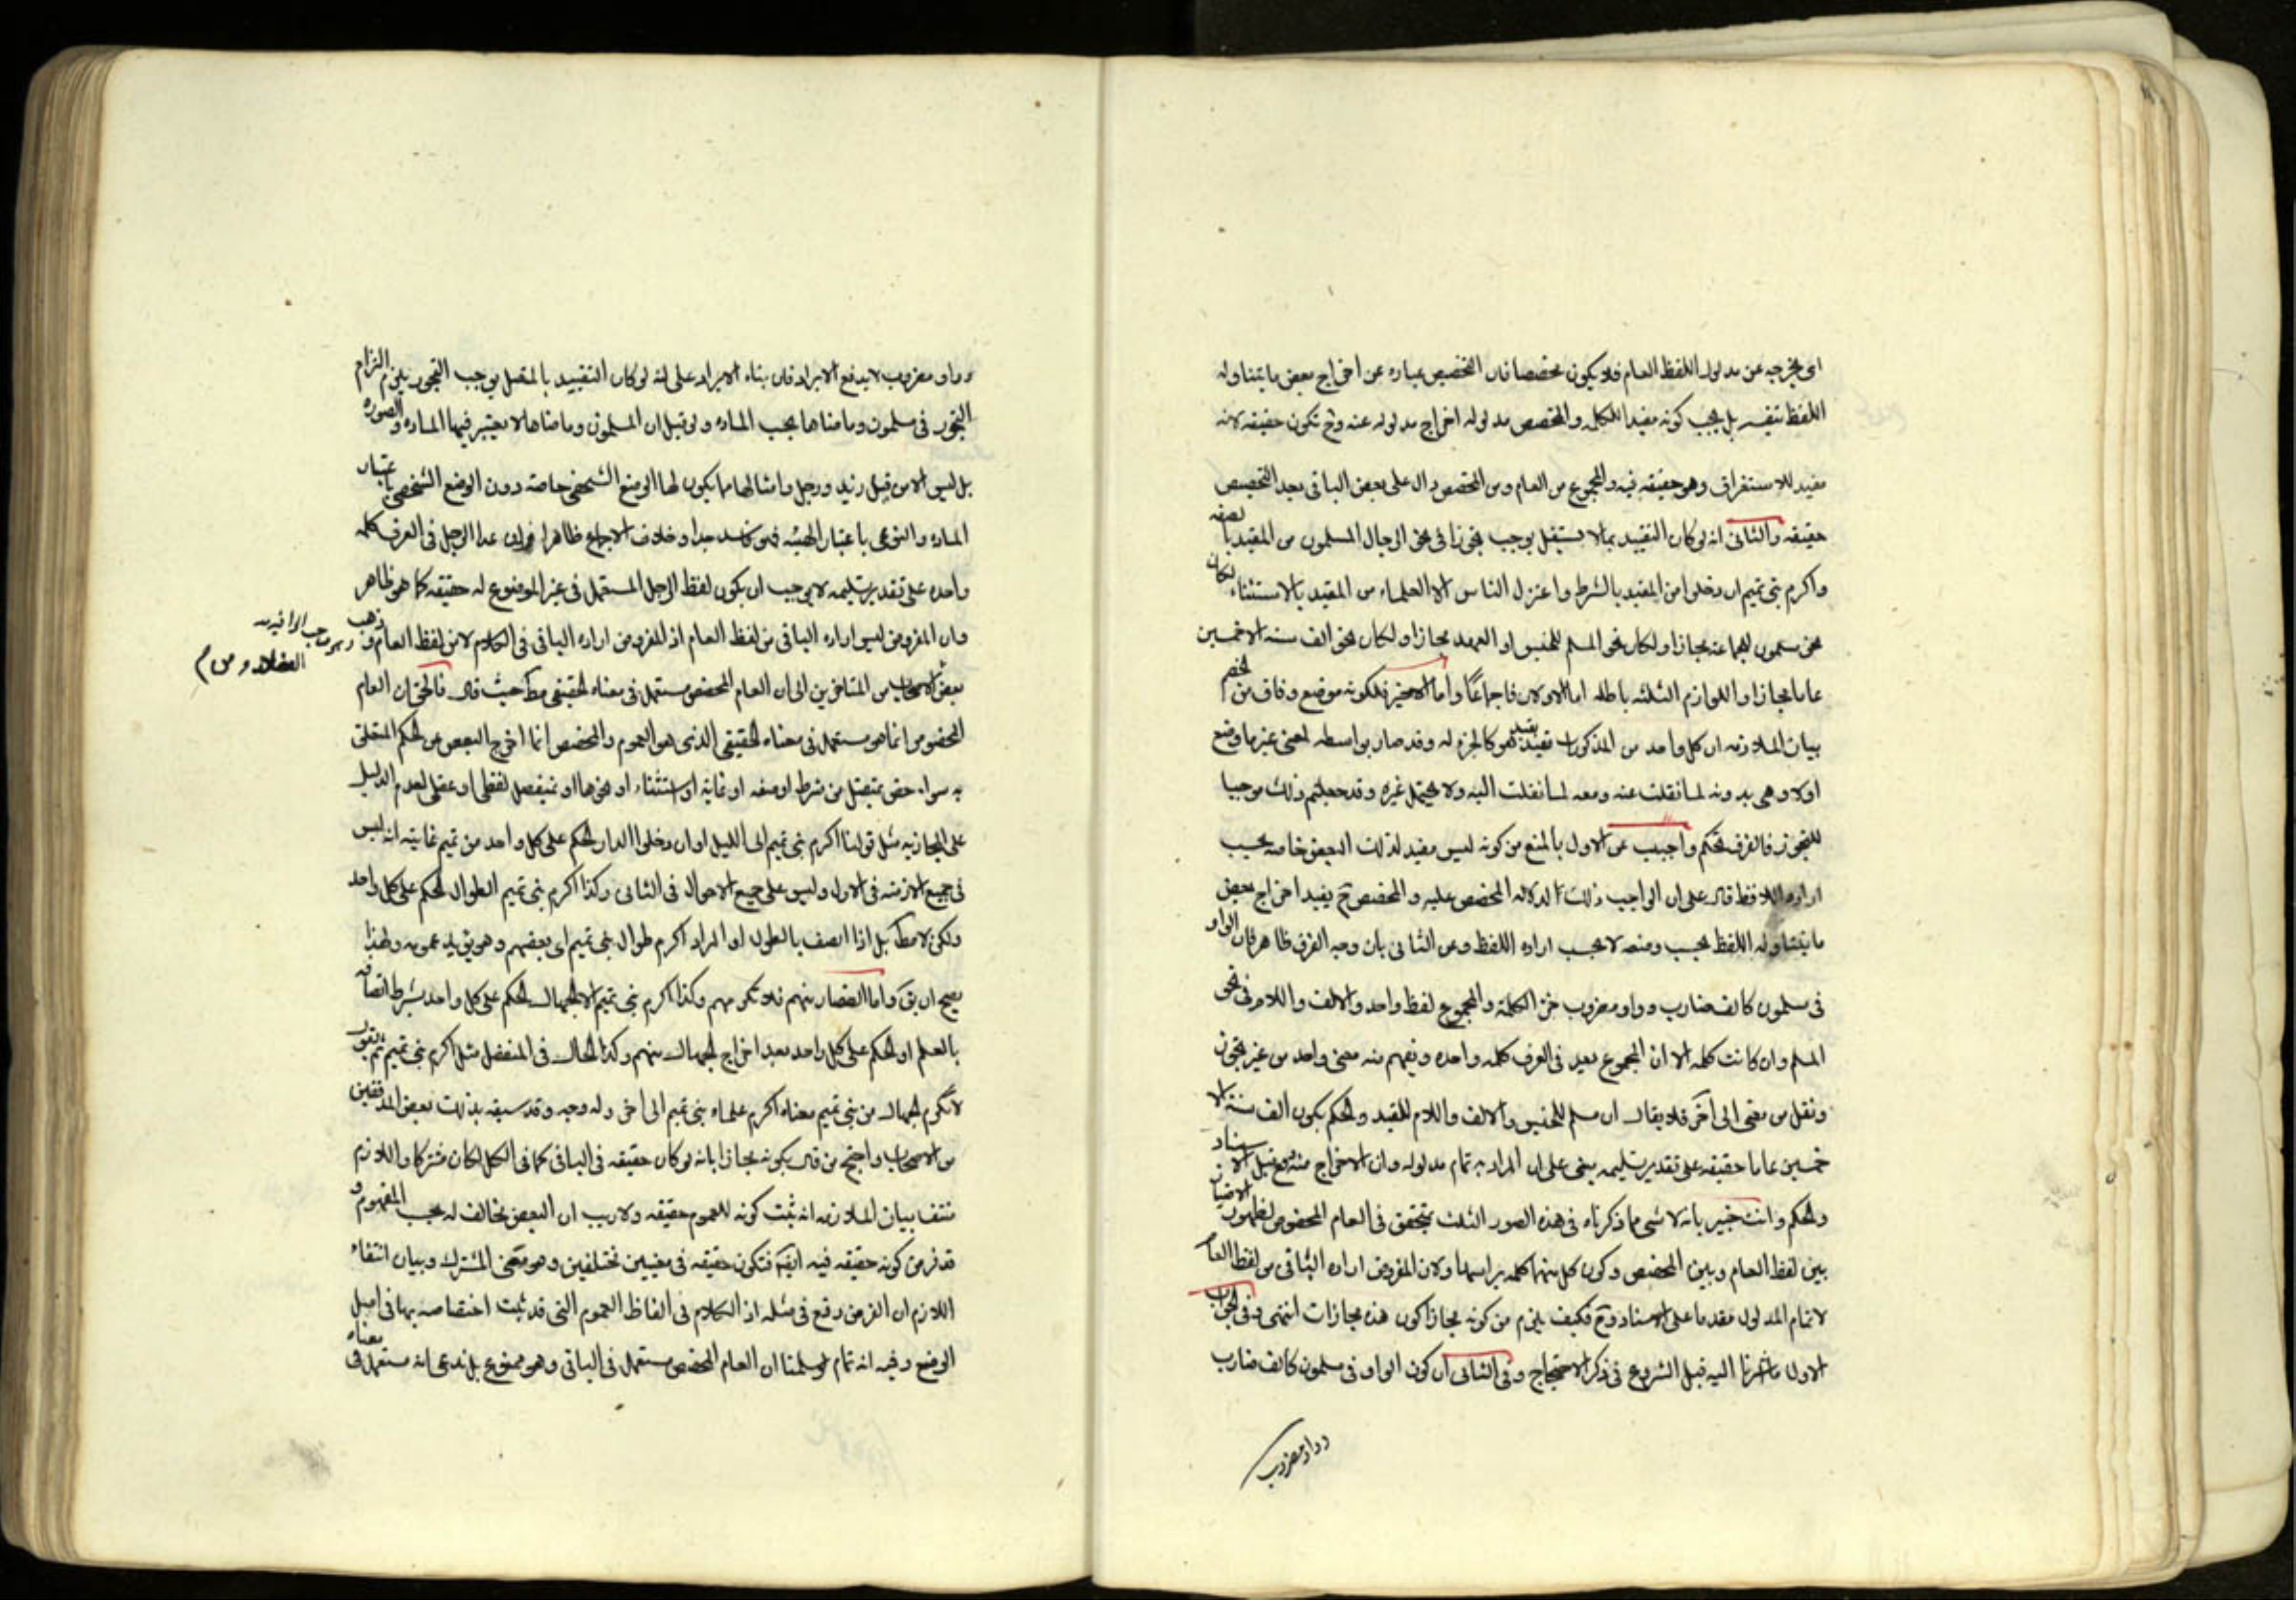 اى يخرجه عن مدلول اللفظ العام فلا يكون مخصصا فان التخصيص عباره عن اخراج بعض ما يتناوله
اللفظ بنفسه بل يجب كونه مفيدا للكل والمخصص مدلوله اخراج مدلوله عنه وح تكون حقيقه لانه
مفيد للاستغراق وهو حقيقه فيه والمجموع من العام ومن المخصص دال على بعض الباقى بعد التخصيص
حقيقه والثانى انه لو كان التقييد بما لا يستقل يوجب تجوزا فى نحو الرجال المسلمون من المقيد بالصفه
واكرم بنى تميم ان دخلوا من المقيد بالشرط واعتزل الناس الا العلماء من المقيد بالاستثناء لكان
نحو مسلمون للجماعه مجازا ولكان نحو المسلم للجنس او العهد مجازا ولكان نحو الف سنه الا خمسين
عاما مجازا واللوازم الثلثه باطله اما الاولان فاجماعا واما الاخير فلكونه موضع وفاق من الخصم
بيان الملازمه ان كل واحد من المذكورات يقيد بقيد هو كالجزء له وقد صار بواسطه لمعنى غير ما وضع
اولا وهى بدونه لما نقلت عنه ومعه لما نقلت اليه ولا يحتمل غيره وقد جعلتم ذلك موجبا
للتجوز فالفرق تحكم واجيب عن الاول بالمنع من كونه ليس مفيد لذلك البعض خاصه بحسب
اراده اللافظ قال على ان الواجب ذلك الدلاله المخصص عليه والمخصص ح يفيد اخراج بعض
ما يتناوله اللفظ بحسب وضعه لا بحسب اراده اللفظ وعن الثانى بان وجه الفرق ظاهر فان الواو
فى مسلمون كالف ضارب وواو مضروب جزء الكلمة والمجموع لفظ واحد والالف واللام فى نحو
المسلم وان كانت كلمه الا ان المجموع يعد فى العرف كلمه واحده ويفهم منه معنى واحد من غير تجوز
ونقل من معنى الى آخر فلا يقال ان مسلم للجنس والالف واللام للقيد والحكم بكون الف سنة الا
خمسين عاما حقيقه على تقدير تسليمه يبنى على ان المراد به تمام مدلوله وان الاخراج منه وقع قبل الاسناد
والحكم وانت خبير بانه لا شى مما ذكرناه فى هذه الصور الثلث يتحقق فى العام المخصوص لظهور الامتياز
بين لفظ العام وبين المخصص وكون كل منهما كلمه براسها ولان المفروض اراده الباقى من لفظ العام
لا تمام المدلول مقدما على الاسناد وح فكيف يلزم من كونه مجازا كون هذه مجازات انتهى وفى الجواب
الاول ما اشرنا اليه قبل الشروع فى ذكر الاحتجاج وفى الثانى ان كون الواو فى مسلمون كالف ضارب
وواو مضروب
وواو مضروب لا يدفع الايراد فان بناء الايراد على انه لو كان التقييد بالمتصل يوجب التجوز يلزم التزام
التجوز فى مسلمون وما ضاهاها بحسب الماده ولو قيل ان المسلمون وما ضاهاها لا يعتبر فيها الماده والصوره
بل ليس الا من قبل زيد ورجل وامثالها مما يكون لها الوضع الشخصى خاصة دون الوضع الشخصى باعتبار
الماده والنوعى باعتبار الهيئه فهو فاسد جدا وخلاف الاجماع ظاهرا وان عد الرجل فى العرف كلمه
واحده على تقدير تسليمه لا يوجب ان يكون لفظ الرجل المستعمل فى غير الموضوع له حقيقه كما هو ظاهر
وان المفروض ليس اراده الباقى من لفظ العام اذ المفروض اراده الباقى فى الكلام لا من لفظ العام وذهب
وهو صاحب الوافيه
بعض الاصحاب من المتاخرين الى ان العام المخصص مستعمل فى معناه الحقيقى مط حيث قال فالحق ان العام
المخصوص انما هو مستعمل فى معناه الحقيقى الذى هو العموم والمخصص انما اخرج البعض من الحكم المتعلق
به سواء خص بمتصل من شرط او صفه او غايه او استثناء او نحوها او بمنفصل لفظى او عقلى لعدم الدليل
على المجازيه مثل قولنا اكرم بنى تميم الى الليل او ان دخلوا الدار الحكم على كل واحد من تميم غايته انه ليس
فى جميع الازمنه فى الاول وليس على جميع الاحوال فى الثانى وكذا اكرم بنى تميم الطوال الحكم على كل واحد
ولكن لا مط بل اذا اتصف بالطول او المراد اكرم طوال بنى تميم اى بعضهم وهو يؤيد عمومه ولهذا
يصح ان يق واما القصار منهم فلا تكرمهم وكذا اكرم بنى تميم الا الجهال الحكم على كل واحد بشرط اتصافه
بالعلم او الحكم على كل واحد بعد اخراج الجهال منهم وكذا الحال فى المنفصل مثل اكرم بنى تميم ثم يقول
لا تكرم الجهال من بنى تميم معناه اكرم علماء بنى تميم الى اخر وله وجه وقد سبقه بذلك بعض المدققين
من الاصحاب واحتج من قال بكونه مجازا بانه لو كان حقيقه فى الباقى كما فى الكل لكان مشتركا واللازم
منتف بيان الملازمه انه ثبت كونه للعموم حقيقه ولا ريب ان البعض مخالف له بحسب المفهوم و
قد فرض كونه حقيقه فيه ايضا فتكون حقيقه فى معنيين مختلفين وهو معنى المشترك وبيان انتفاء
اللازم ان الفرض وقع فى مثله اذ الكلام فى الفاظ العموم التى قد ثبت اختصاصه بها فى اصل
الوضع وفيه انه تمام لو سلمنا ان العام المخصص مستعمل فى الباقى وهو ممنوع بل ندعى انه مستعمل فى معناه